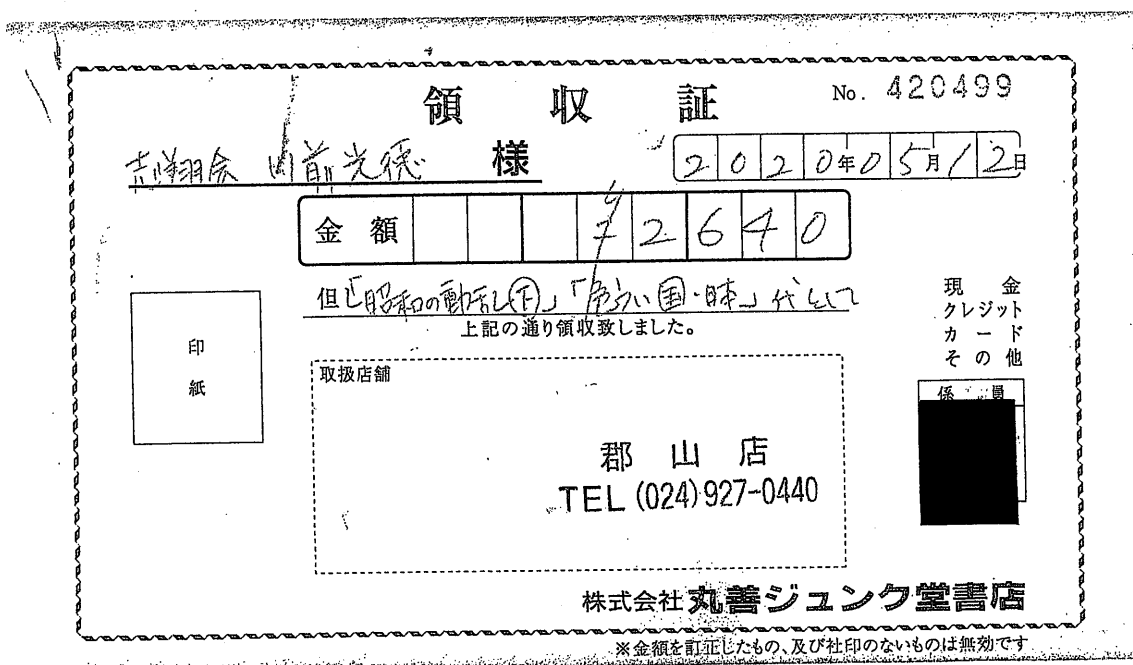 領収証
No. 420499
吉翔会 山前光徳 様
2020年05月12日
金額 ¥2640
但「昭和の動乱(下)」「危うい国・日本」代として
上記の通り領収致しました。
現金
クレジット
カード
その他
印
紙
取扱店舗
係員
郡山店
TEL (024)927-0440
株式会社丸善ジュンク堂書店
※金額を訂正したもの、及び社印のないものは無効です